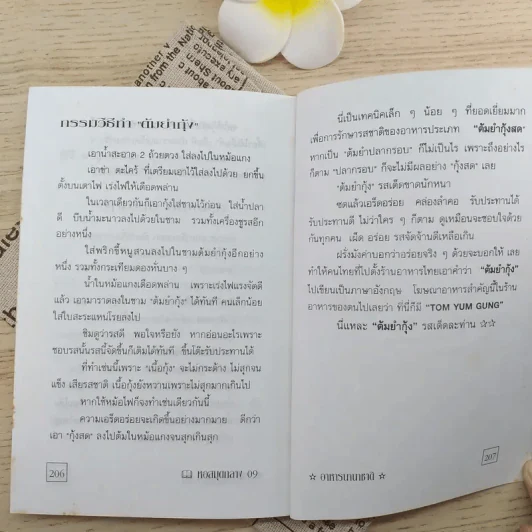 กรรมวิธีทำ "ต้มยำกุ้ง"
เอาน้ำสะอาด 2 ถ้วยตวง ใส่ลงไปในหม้อแกง
เอาข่า ตะไคร้ ที่เตรียมเอาไว้ใส่ลงไปด้วย ยกขึ้น
ตั้งบนเตาไฟ เร่งไฟให้เดือดพล่าน
ในเวลาเดียวกันก็เอากุ้งใส่ชามไว้ก่อน ใส่น้ำปลา
ดี บีบน้ำมะนาวลงไปด้วยในชาม รวมทั้งเครื่องชูรสอีก
อย่างหนึ่ง
ใส่พริกขี้หนูสวนลงไปในชามต้มยำกุ้งอีกอย่าง
หนึ่ง รวมทั้งกระเทียมดองหั่นบาง ๆ
น้ำในหม้อแกงเดือดพล่าน เพราะเร่งไฟแรงจัดดี
แล้ว เอามาราดลงในชาม "ต้มยำกุ้ง" ได้ทันที คนเล็กน้อย
ใส่ใบสะระแหน่โรยลงไป
ชิมดูว่ารสดี พอใจหรือยัง หากอ่อนอะไรเพราะ
ชอบรสนั้นรสนี้จัดขึ้นก็เติมได้ทันที ขึ้นโต๊ะรับประทานได้
ที่ทำเช่นนี้เพราะ "เนื้อกุ้ง" จะไม่กระด้าง ไม่สุกจน
แข็ง เสียรสชาติ เนื้อกุ้งยังหวานเพราะไม่สุกมากเกินไป
หากใช้หม้อไฟก็จงทำเช่นเดียวกันนี้
ความเอร็ดอร่อยจะเกิดขึ้นอย่างมากมาย ดีกว่า
เอา "กุ้งสด" ลงไปต้มในหม้อแกงจนสุกเกินสุก
206
หอสมุดกลาง 09
นี่เป็นเทคนิคเล็ก ๆ น้อย ๆ ที่ยอดเยี่ยมมาก
เพื่อการรักษารสชาติของอาหารประเภท "ต้มยำกุ้งสด"
หากเป็น "ต้มยำปลากรอบ" ก็ไม่เป็นไร เพราะถึงอย่างไร
ก็ตาม "ปลากรอบ" ก็จะไม่มีผลอย่าง "กุ้งสด" เลย
"ต้มยำกุ้ง" รสเด็ดขาดนักหนา
ซดแล้วเอร็ดอร่อย คล่องลำคอ รับประทานได้
รับประทานดี ไม่ว่าใคร ๆ ก็ตาม ดูเหมือนจะชอบใจด้วย
กันทุกคน เผ็ด อร่อย รสจัดจ้านดีเหลือเกิน
ฝรั่งมังค่าบอกว่าอร่อยจริง ๆ ด้วยจะบอกให้ เลย
ทำให้คนไทยที่ไปตั้งร้านอาหารไทยเอาคำว่า "ต้มยำกุ้ง"
ไปเขียนเป็นภาษาอังกฤษ โฆษณาอาหารสำคัญนี้ในร้าน
อาหารของตนไปเลยว่า ที่นี่ก็มี "TOM YUM GUNG"
นี่แหละ "ต้มยำกุ้ง" รสเด็ดละท่าน ☆☆
207
☆ อาหารนานาชาติ ☆